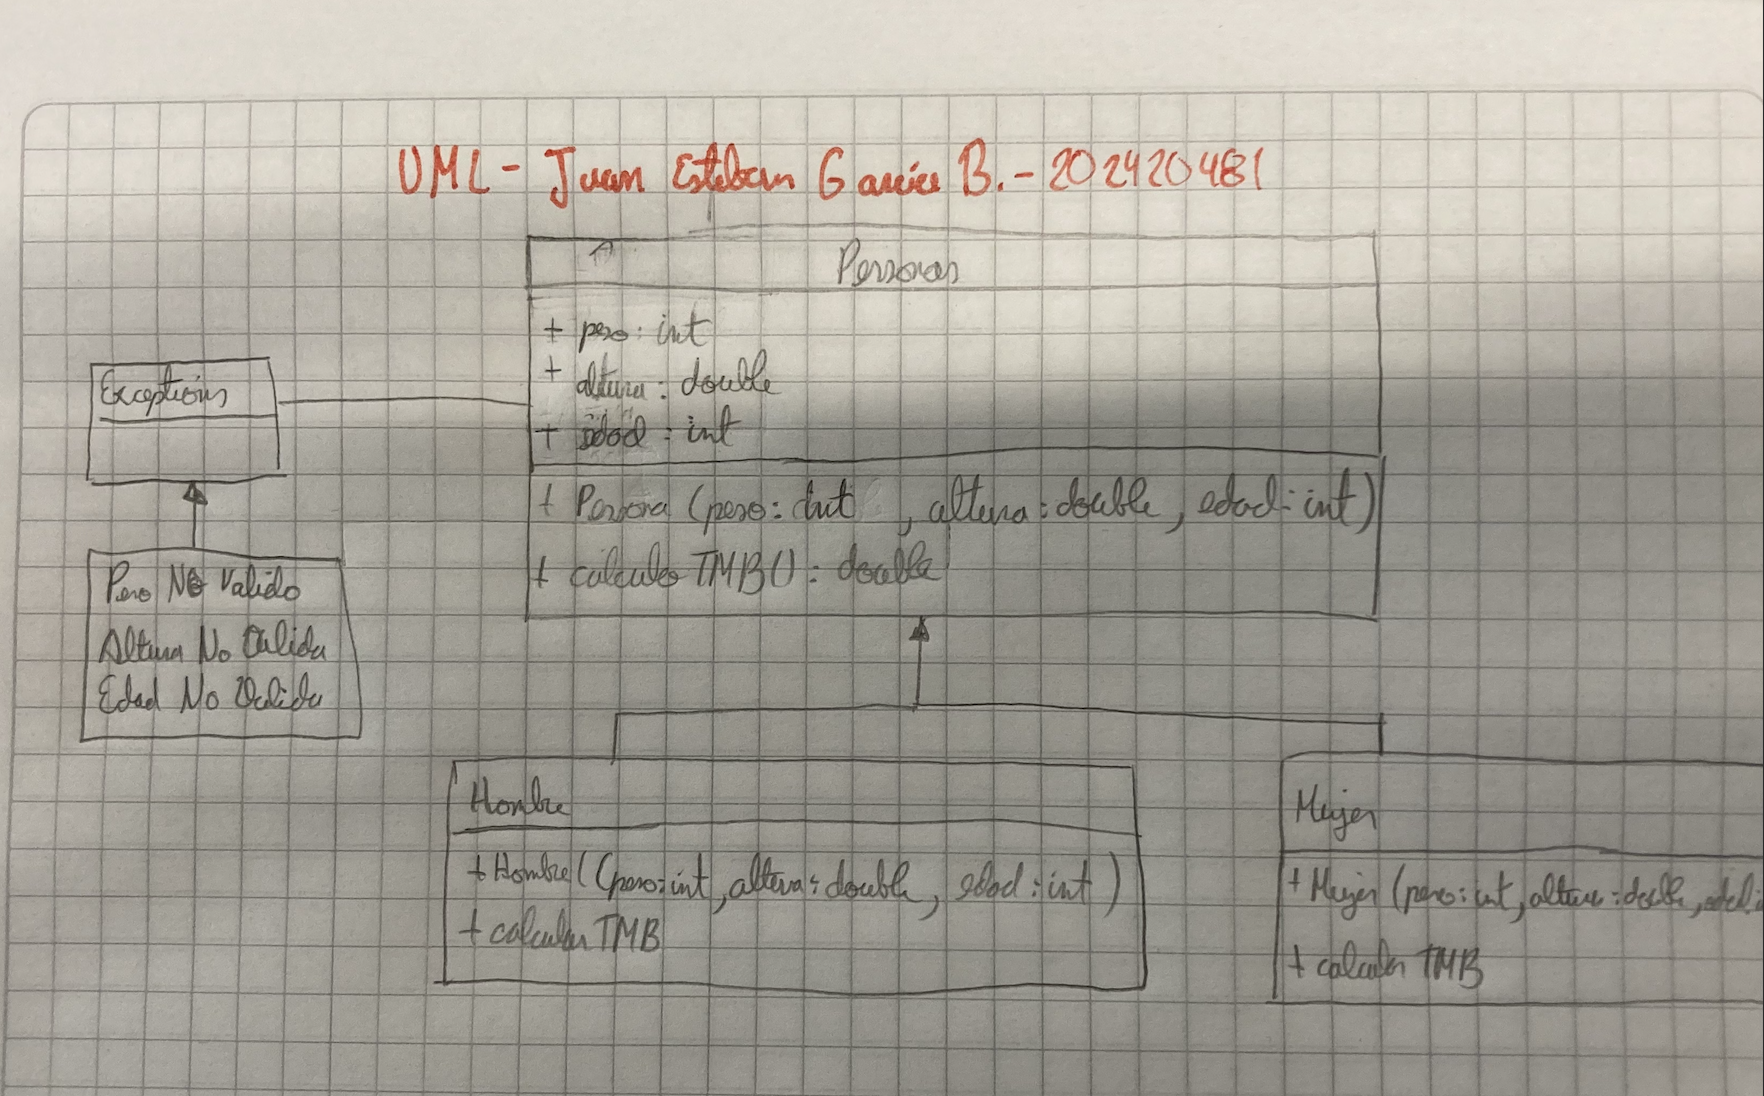 UML - Juan Esteban García B. - 202420481
Personas
+ peso: int
+ altura: double
+ edad: int
+ Persona (peso: int , altura: double, edad: int)
+ calcular TMB(): double
Exceptions
Peso No Valido
Altura No Valida
Edad No Valida
Hombre
+ Hombre ((peso: int, altura: double, edad: int)
+ calcular TMB
Mujer
+ Mujer (peso: int, altura: double, edad:
+ calcular TMB